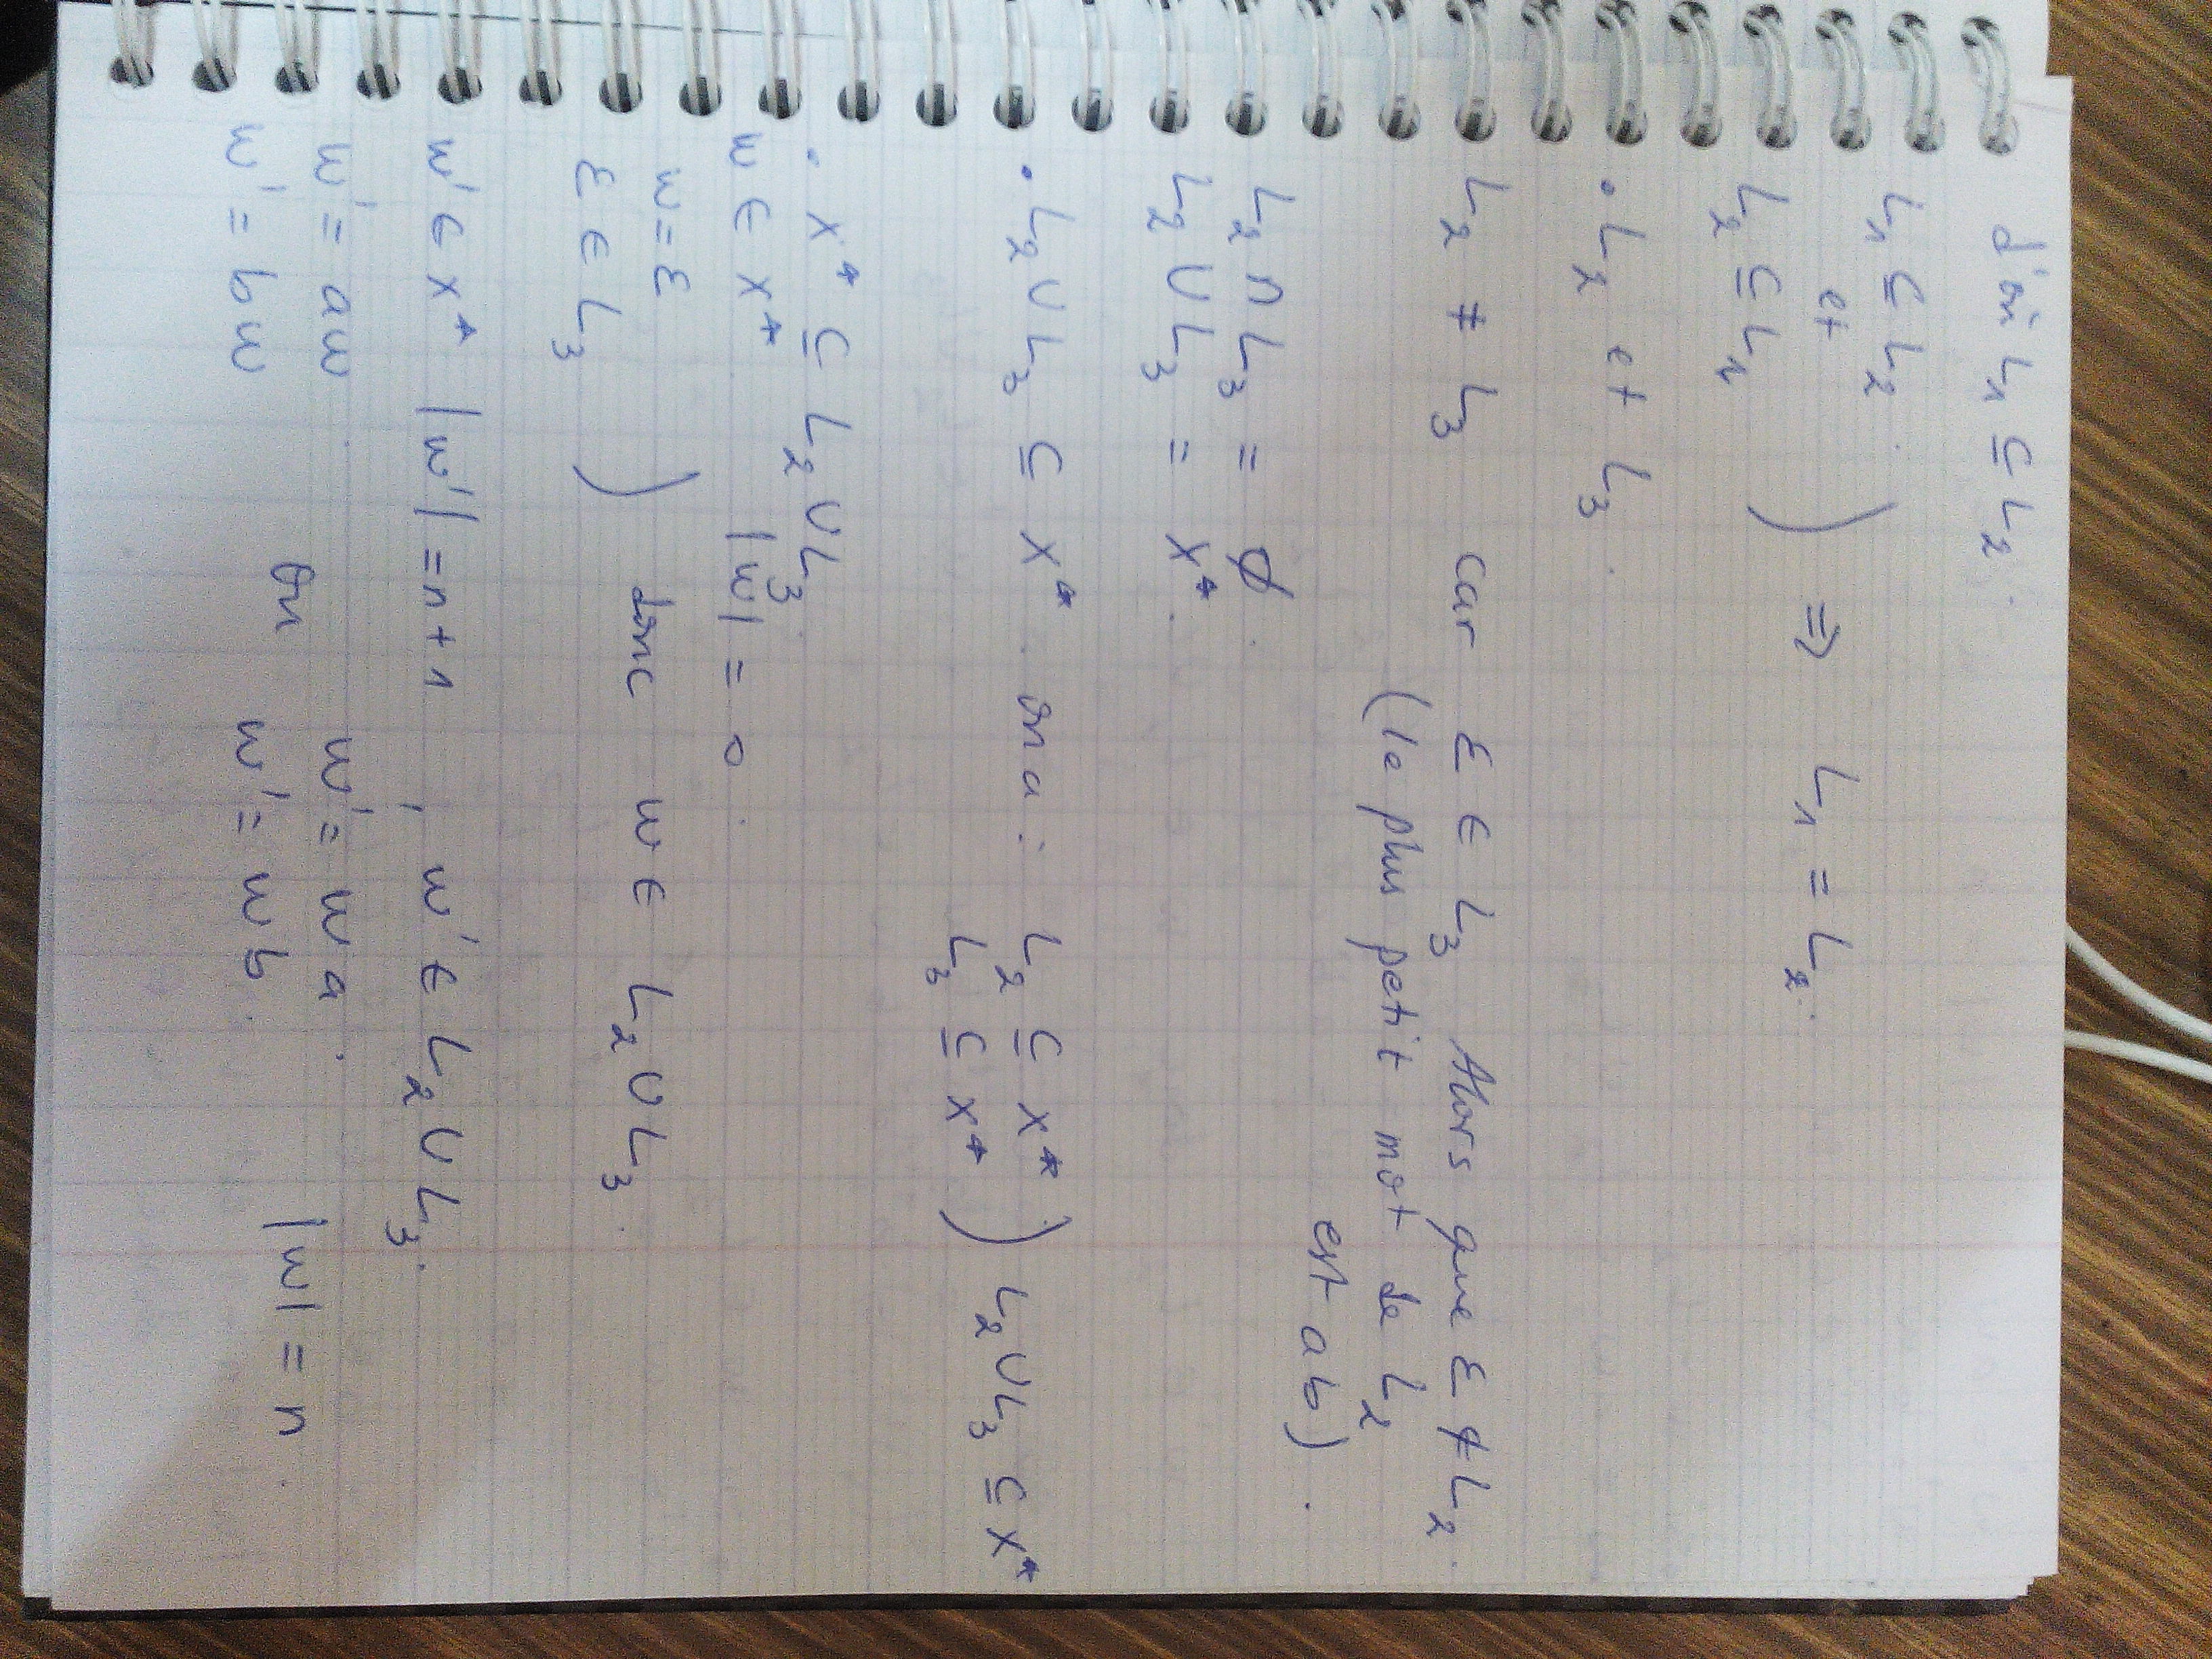 d'où L₁ ⊆ L₂.
L₁ ⊆ L₂.
et ) ⇒ L₁ = L₂.
L₂ ⊆ L₁
• L₂ et L₃.
L₂ ≠ L₃ car ε ∈ L₃ Alors que ε ∉ L₂.
(le plus petit mot de L₂
est ab).
L₂ ∩ L₃ = ∅.
L₂ ∪ L₃ = X*.
• L₂ ∪ L₃ ⊆ X*. on a : L₂ ⊆ X* ) L₂ ∪ L₃ ⊆ X*
L₃ ⊆ X*
• X* ⊆ L₂ ∪ L₃.
w ∈ X* |w| = 0.
w = ε
ε ∈ L₃ ) donc w ∈ L₂ ∪ L₃.
w' ∈ X* |w'| = n + 1 , w' ∈ L₂ ∪ L₃.
w' = aw ou w' = wa. |w| = n.
w' = bw w' = wb.